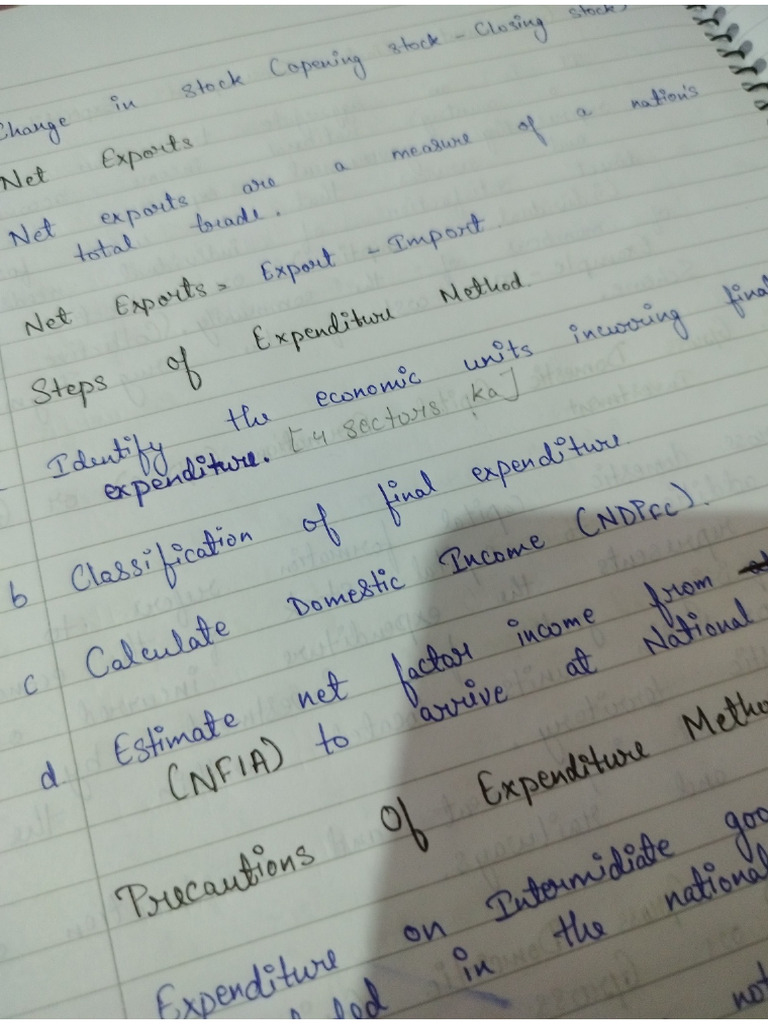 Change in stock (opening stock - Closing stock)
Net Exports
Net exports are a measure of a nation's
total trade.
Net Exports = Export - Import.
Steps of Expenditure Method.
Identify the economic units incurring final
expenditure. [4 sectors ka]
b Classification of final expenditure.
c Calculate Domestic Income (NDPFC).
d Estimate net factor income from
(NFIA) to arrive at National
Precautions Of Expenditure Metho
Expenditure on Intermidiate goo
in the national
not